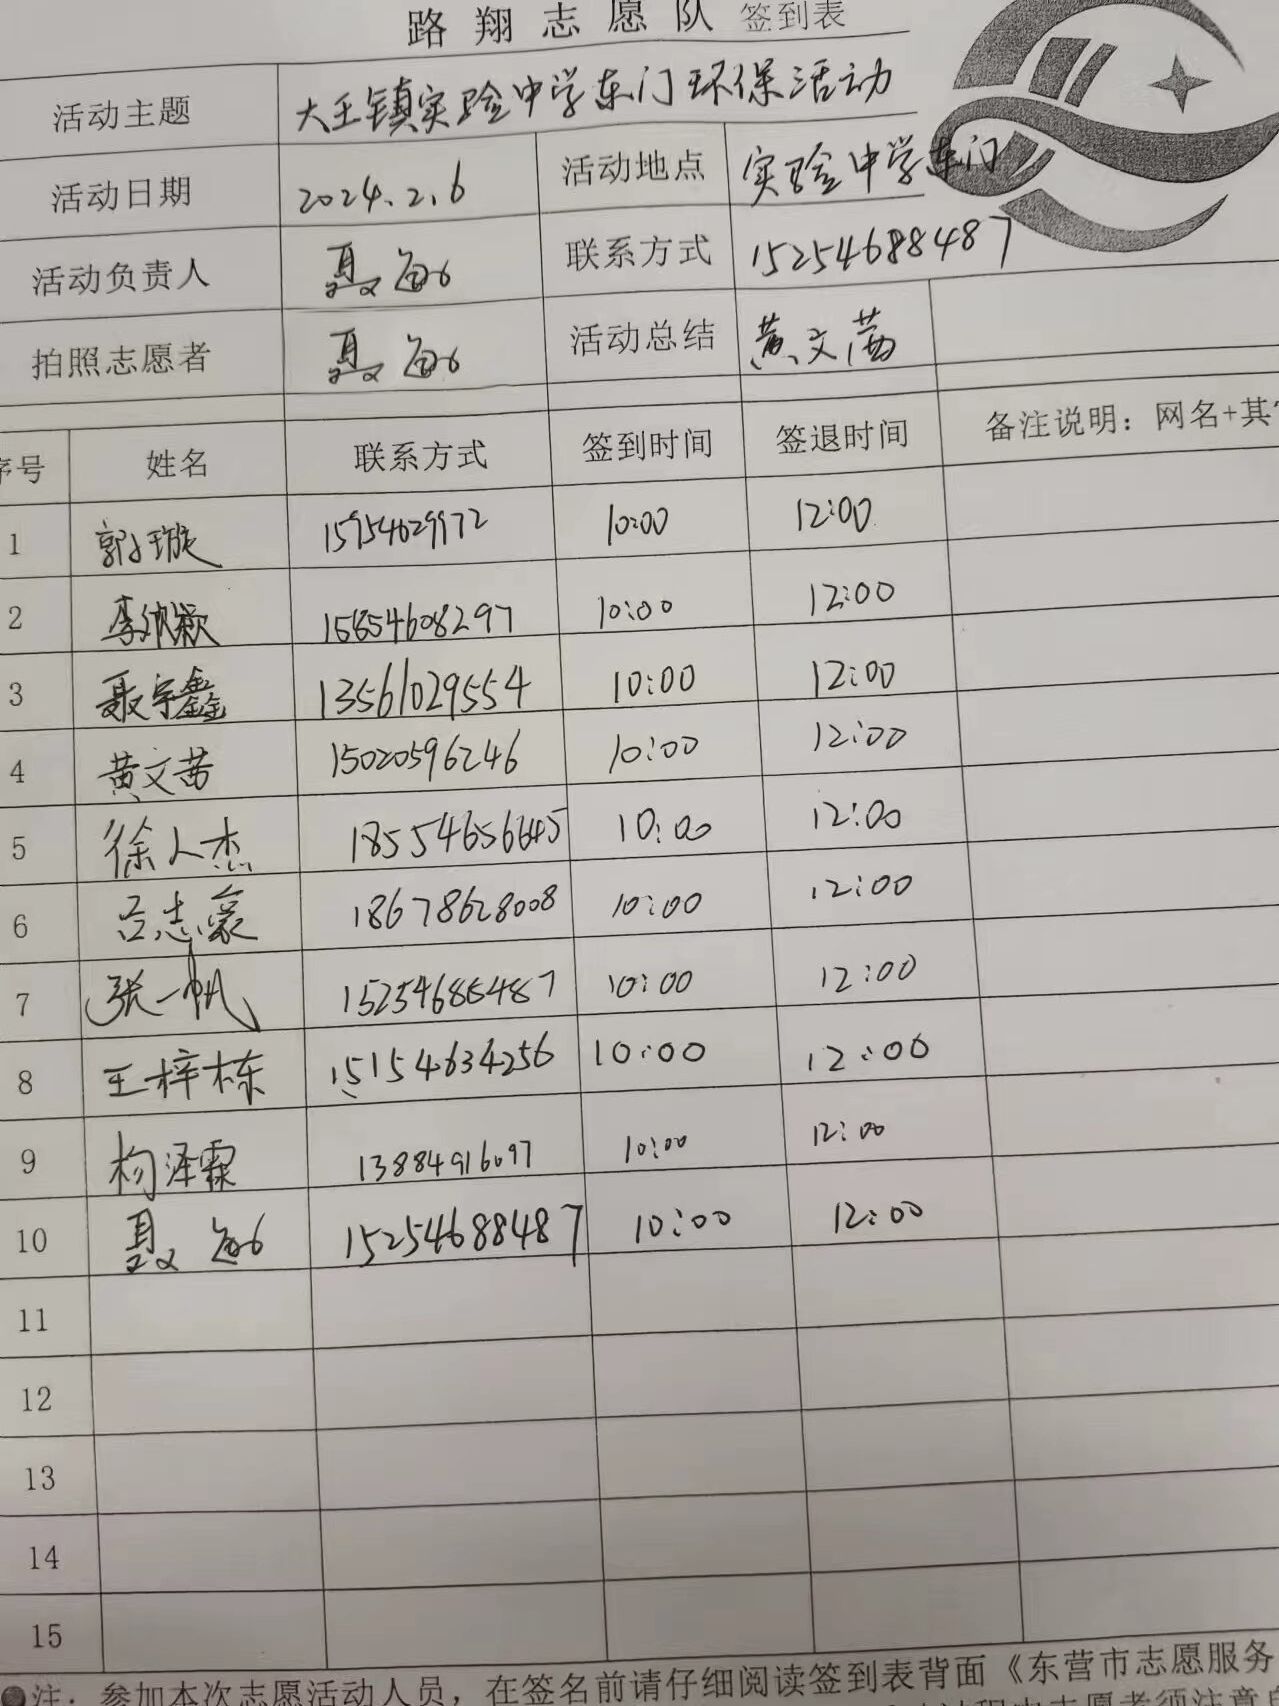 路翔志愿队 签到表
活动主题 大王镇实验中学东门环保活动
活动日期 2024.2.6 活动地点 实验中学东门
活动负责人 聂敏 联系方式 15254688487
拍照志愿者 聂敏 活动总结 黄文茜
序号 姓名 联系方式 签到时间 签退时间 备注说明：网名+其
1 郭小璇 15954629972 10:00 12:00
2 李 颖 15854608297 10:00 12:00
3 聂宇鑫 13561029554 10:00 12:00
4 黄文茜 15020596246 10:00 12:00
5 徐人杰 10:00 12:00
6 吕志豪 18678628008 10:00 12:00
7 张一帆 15254688487 10:00 12:00
8 王梓栋 15154634256 10:00 12:00
9 杨泽霖 13884916097 10:00 12:00
10 聂敏 15254688487 10:00 12:00
11
12
13
14
15
●注：参加本次志愿活动人员，在签名前请仔细阅读签到表背面《东营市志愿服务
过程中志愿者须注意